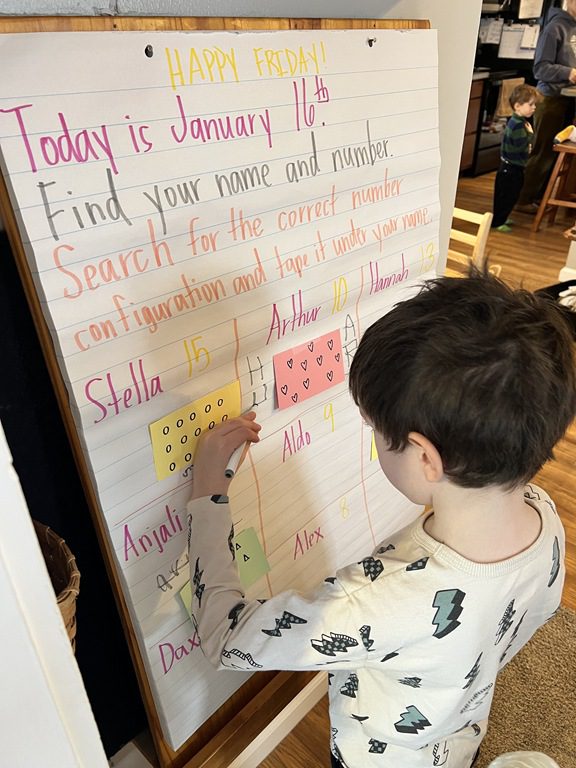 HAPPY FRIDAY!
Today is January 16th.
Find your name and number.
Search for the correct number
configuration and tape it under your name.
Stella 15 Arthur 10 Hannah 13
Aldo 9
Anjali Alex 8
Dax